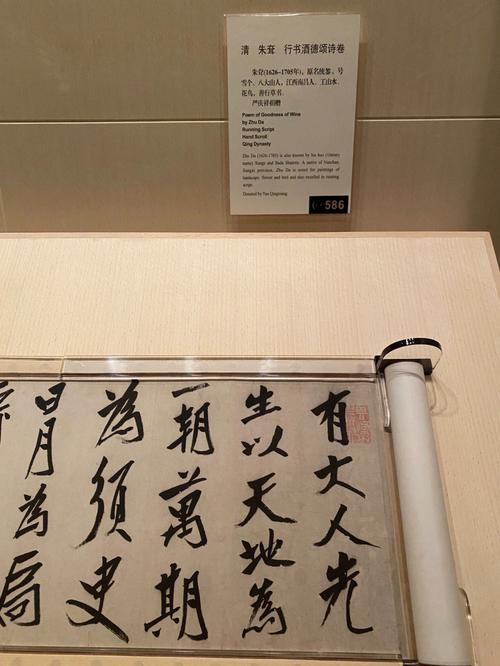 清 朱耷 行书酒德颂诗卷
朱耷(1626-1705年)，原名统𨨗，号
雪个、八大山人，江西南昌人。工山水、
花鸟，善行草书。
严庆祥捐赠
Poem of Goodness of Wine
by Zhu Da
Running Script
Hand Scroll
Qing Dynasty
Zhu Da (1626-1705) is also known by his hao (literary
name) Xuege and Bada Shanren. A native of Nanchang,
Jiangxi province, Zhu Da is noted for paintings of
landscape, flower and bird and also excelled in running
script.
Donated by Yan Qingxiang
586
有大人先
生以天地為
一朝萬期
為須臾
日月為扃